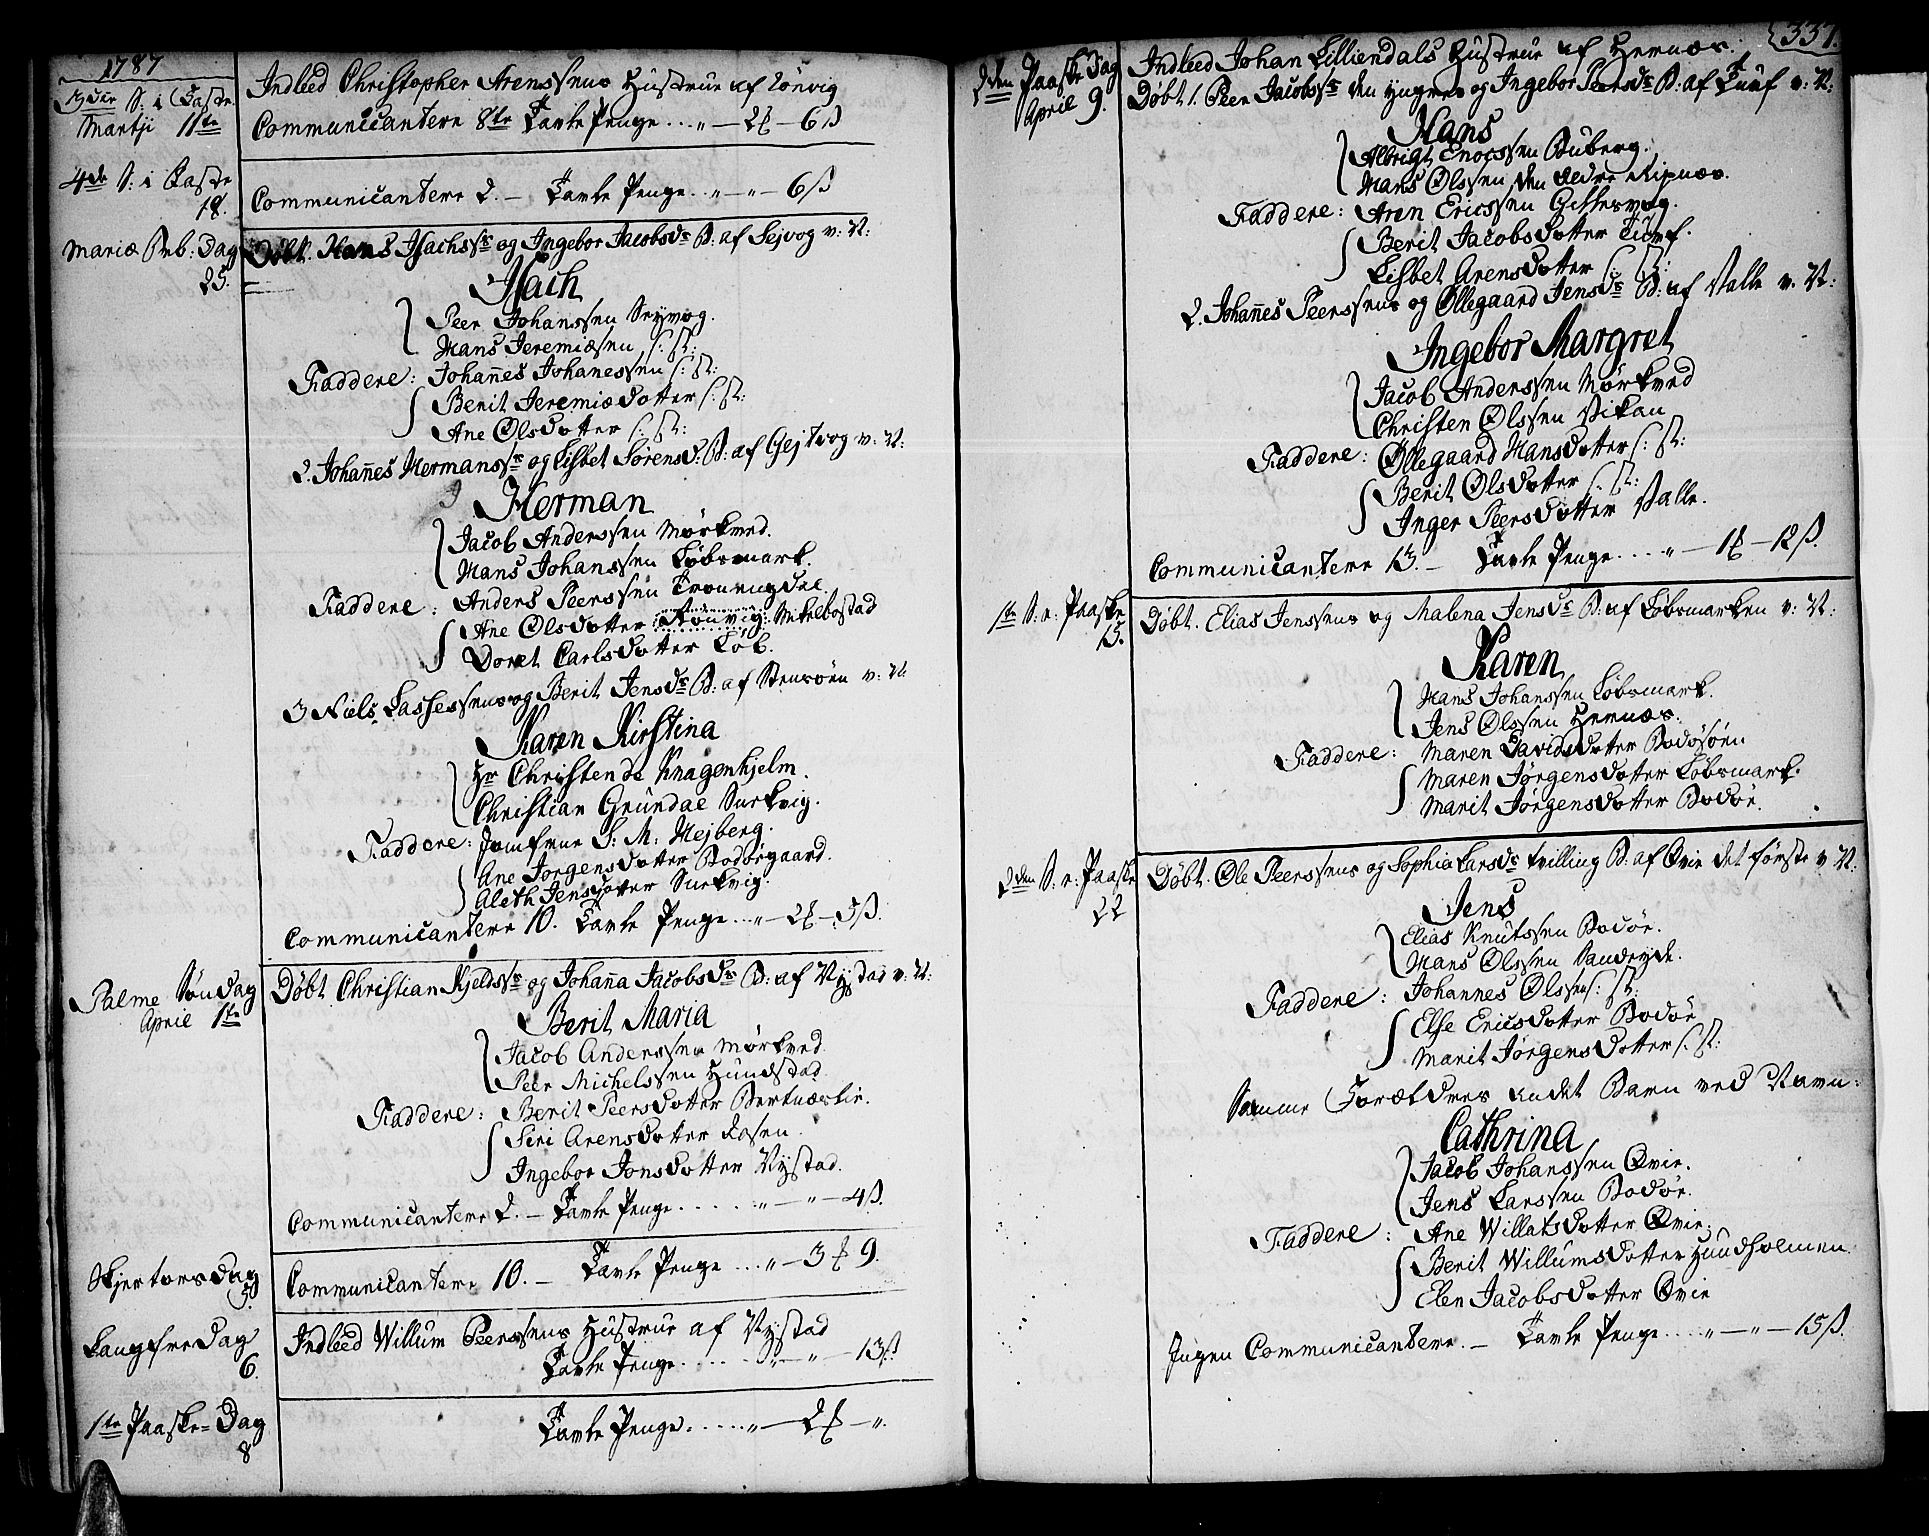 1787
3die S: i Faste
Martji 11te
Indleed Christopher Arenssens Hustrue af Lönvig
Communicantere 8te Tavle Penge...„—2 ₰—6ß
4de S: i Faste
18.
Communicantere 2.— Tavle Penge..„—„—6ß
Mariæ Beb: Dag
25.
Døbt. Hans Isachssns og Ingebor Jacobsdr B: af Sejvog v: N:
Isach
Peer Johanssen Sejvog.
Hans Jeremiæsen s: st:
Faddere: Johan̄es Johanessen s: st:
Berit Jeremiædotter s: st:
Ane Olsdotter s: st:
2. Johan̄es Hermanssns og Lisbet Sørensd: B: af Gejtvog v: N:
Herman
Jacob Anderssen Mörkved.
Hans Johanssen Löbsmark.
Faddere: Anders Peerssen
Ane Olsdotter Mikelbostad
Doret Carlsdotter Löb.
3 Niels Lassessens og Berit Jensdr B: af Stensöen v: N.
Karen Kirstina
Hr Christen de Knagenhjelm.
Christian Grundal Surkvig.
Faddere: Jomfrue S: M: Hejberg.
Ane Jørgensdotter Bodöegaard.
Aleth Jensdotter Surkvig.
Communicantere 10. Tavle Penge...„—2 ₰—5ß.
Palme Søndag
April 1te
Døbt. Christian Kjeldssns og Johan̄a Jacobsdr B: af Nystad v: N:
Berit Maria
Jacob Anderssen Mörkved.
Peer Michelssen Hundstad.
Faddere: Berit Peersdotter
Siri Arensdotter Aasen.
Ingebor Jonsdotter Nystad.
Communicantere 2.— Tavle Penge......„—„—4ß.
Skjertorsdag
5.
Communicantere 10.— Tavle Penge...„—3 ₰ 9.
Langfredag
6.
Indleed Willum Peerssens Hustrue af Nystad
Tavle Penge.......„—„—13ß
1te Paaske-Dag
8
Tavle Penge......„—2 ₰—„.
337.
2den Paaske Dag
April 9.
Indleed Johan Lilliendals Hustrue af Hernæs.
Døbt 1. Peer Jacobssns den yngres og Ingebor Peersdr B: af Tuuf v: N:
Hans
Albrigt Enocssen Buberg.
Hans Olssen den Ældre Ripnæs.
Faddere: Aren Ericssen Gillesvog.
Berit Jacobsdotter Tuuf.
Lisbet Arensdotter s: st:
2. Johan̄es Peerssens og Øllegaard Jensdr B: af Valle v. N:
Ingebor Margret
Jacob Anderssen Mörkved
Christen Olssen Vikan
Faddere: Øllegaard Hansdotter s: st:
Berit Olsdotter s: st:
Inger Peersdotter Valle.
Communicantere 13.— Tavle Penge....„—1 ₰—12ß.
1te S. e. Paaske
15.
Døbt. Elias Jenssens og Malena Jensdr B: af Löbsmarken v: N:
Karen
Hans Johanssen Löbsmark.
Jens Olssen Hernæs.
Faddere: Maren Davidsdotter Bodösöen
Maren Jørgensdotter Löbsmark.
Marit Jørgensdotter Bodöe.
2den S. e: Paaske
22
Døbt. Ole Peerssens og Sophia Larsdr tvilling B: af Qvie det første v N:
Jens
Elias Knutssen Bodöe.
Hans Olssen
Faddere: Johannes Olssen s: st:
Else Ericsdotter Bodöe
Marit Jørgensdotter s: st:
Samme Forældres andet Barn ved Navn:
Cathrina
Jacob Johanssen Qvie.
Jens Larssen Bodöe.
Faddere: Ane Willatsdotter Qvie.
Berit Willumsdotter Hundholmen.
Elen Jacobsdotter Qvie
Ingen Communicantere.— Tavle Penge....„—„—15ß.